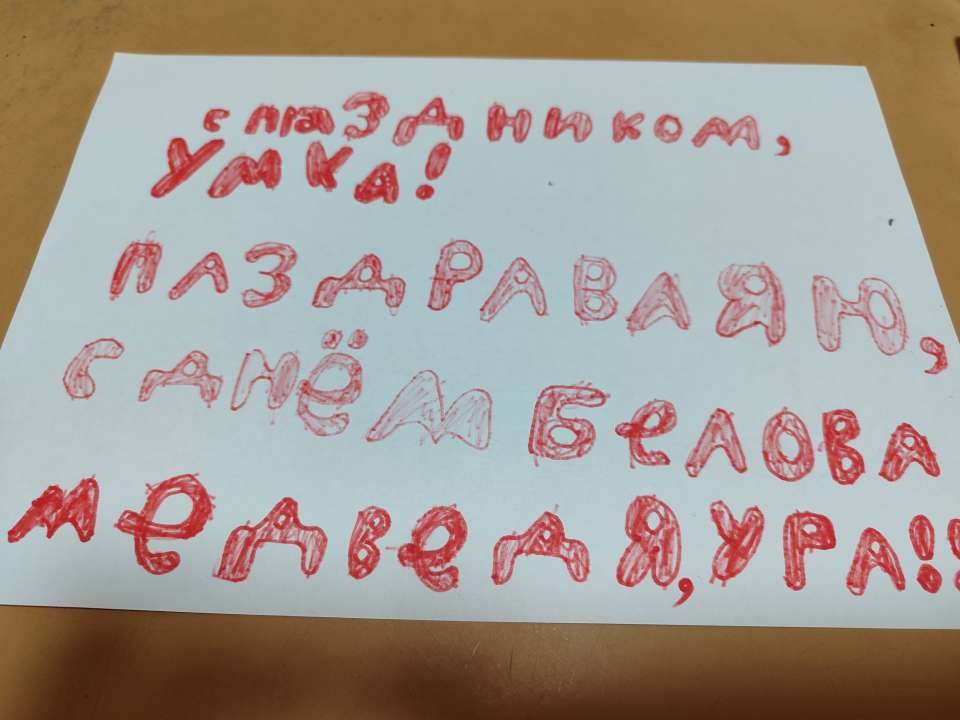 с праздником,
Умка!
ПАЗДРАВАЛЯЮ,
С ДНЁМ БеЛОВА
МеДВеДЯ, УРА!!!